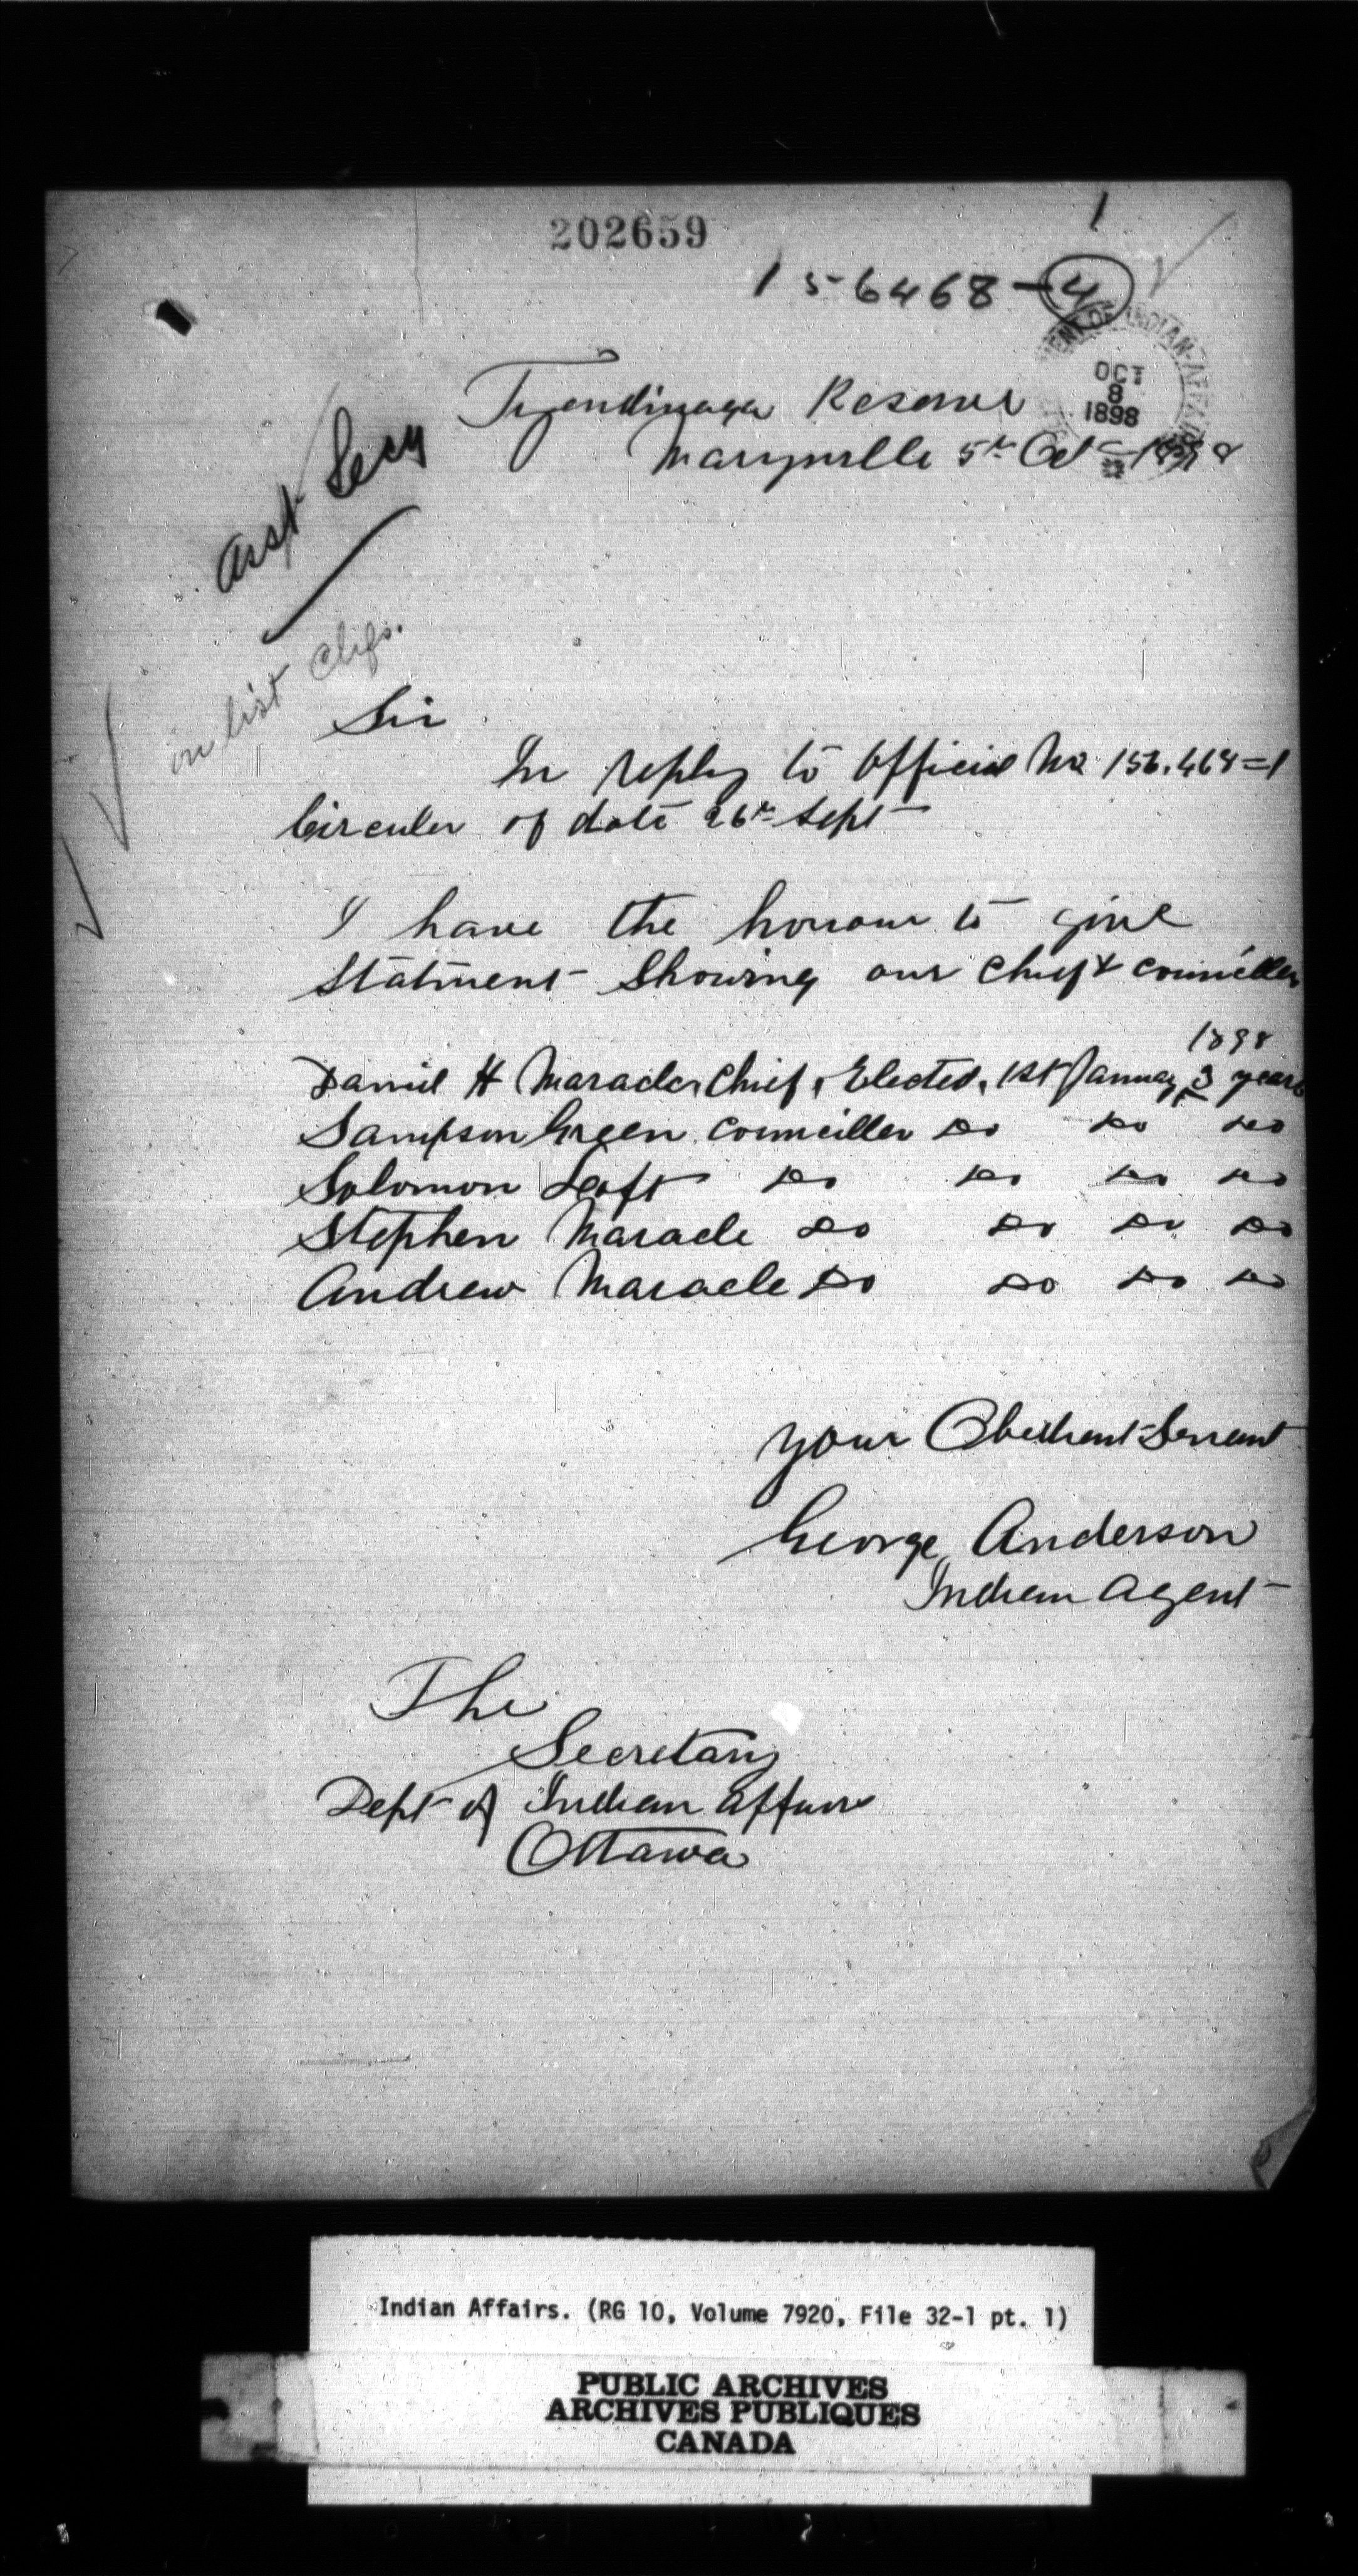 202659
1
156468-4
DEPARTMENT OF INDIAN AFFAIRS
OCT
8
1898
Tyendinaga Reserve
Marysville 5th Oct 1898
Asst Secy
in list Chfs.
Sir
In reply to Official No 156.468=1
Circuler of date 26th Sept
I have the honour to give
Statment Showing our Chief & Councillers
1898
Daniel H Maracle, Chief, Elected, 1st January, 3 years
Sampson Green Counciller Do Do Do
Solomon Loft Do Do Do Do
Stephen Maracle Do Do Do Do
Andrew Maracle Do Do Do Do
Your Obedient Servant
George Anderson
Indian Agent
The
Secretary
Dept of Indian Affairs
Ottawa
Indian Affairs. (RG 10, Volume 7920, File 32-1 pt. 1)
PUBLIC ARCHIVES
ARCHIVES PUBLIQUES
CANADA